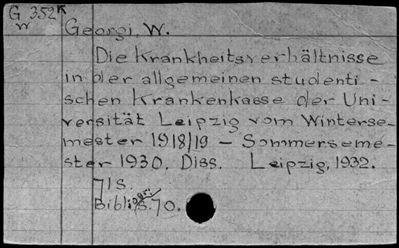 G 352K
W
Georgi, W.
Die Krankheitsverhältnisse
in der allgemeinen studenti-
schen Krankenkasse der Uni-
versität Leipzig vom Winterse-
mester 1918/19 - Sommerseme-
ster 1930. Diss. Leipzig, 1932.
71 S.
Bibliogr. S. 70.